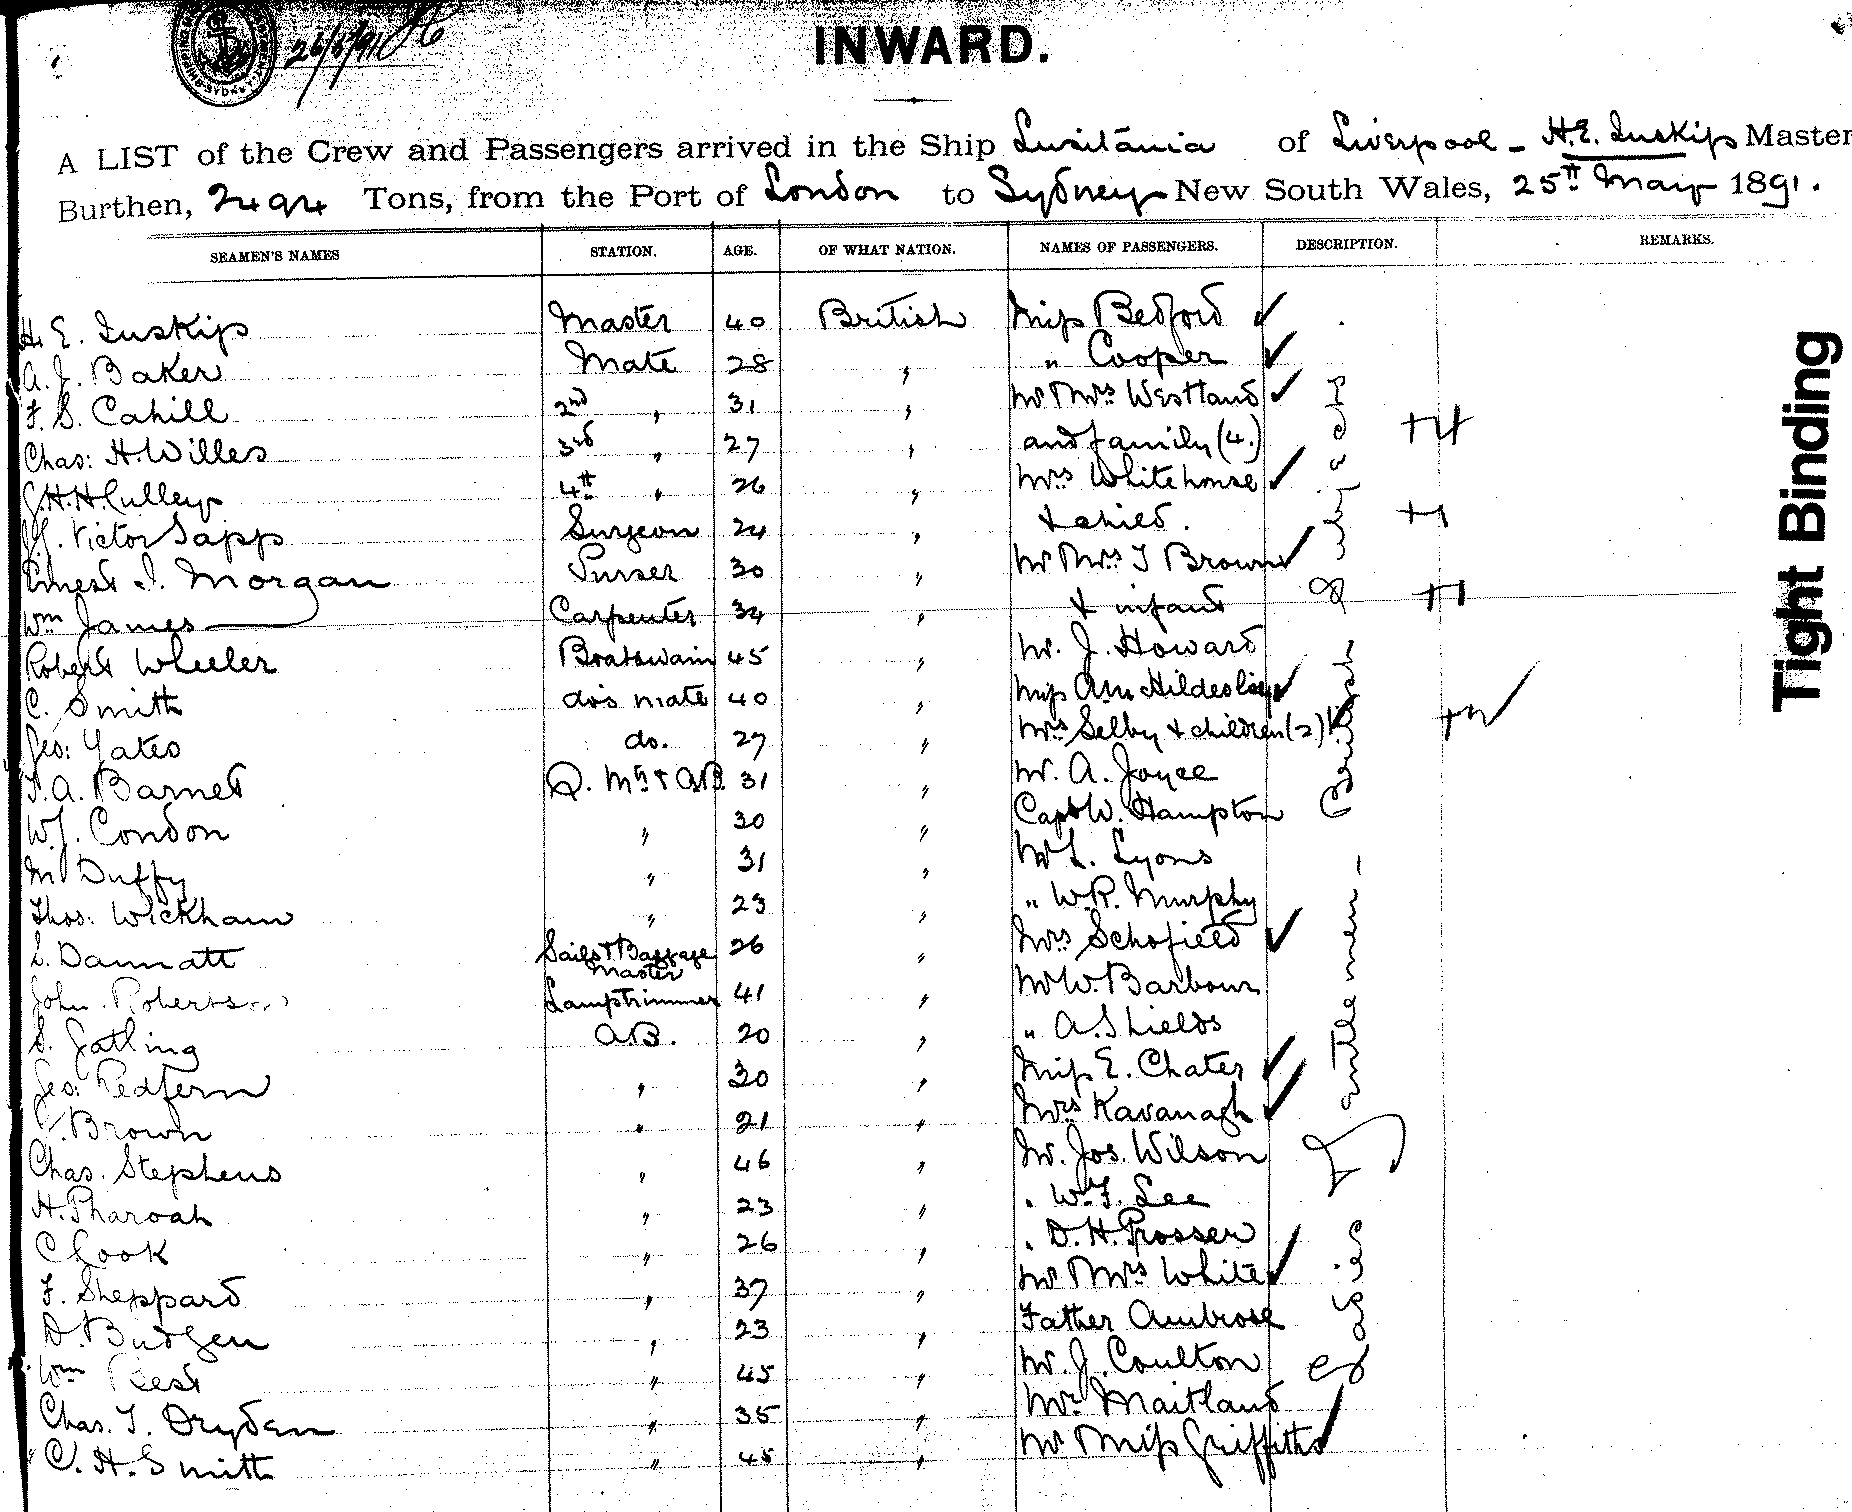 26/5/91
INWARD.
A LIST of the Crew and Passengers arrived in the Ship Lusitania of Liverpool - H.E. Inskip Master
Burthen, 2494 Tons, from the Port of London to Sydney New South Wales, 25th May 1891.
SEAMEN'S NAMES STATION. AGE. OF WHAT NATION. NAMES OF PASSENGERS. DESCRIPTION. REMARKS.
H. E. Inskip Master 40 British Miss Bedford
A. J. Baker Mate 28 " " Cooper
F. S. Cahill 2nd " 31 " Mr & Mrs Westland
Chas: H. Willes 3rd " 27 " and family (4.)
G.H.H. Culley 4th " 26 " Mrs Whitehouse
J. Victor Sapp Surgeon 24 " & child.
Ernest I. Morgan Purser 30 " Mr & Mrs T Brown
Wm James Carpenter 34 " & infant
Robert Wheeler Boatswain 45 " Mr. J. Howard
C. Smith do's mate 40 " Miss
Geo: Yates do. 27 " Mrs Selby & children (2)
A. Barnet Q. Mr & AB. 31 " Mr. A. Joyce
W.J. Condon " 30 " Capt W. Hampton
M Duffy " 31 " Mr L. Lyons
Thos: Wickham " 23 " " W.R. Murphy
L. Dannatt Sails & Baggage Master 26 " Mrs Schofield
John Robertson Lamptrimmer 41 " Mr W. Barbour
S. Gatling AB. 20 " " A. Shields
Geo: Redfern " 30 " Miss E. Chater
Brown " 21 " Mrs Kavanagh
Chas. Stephens " 46 " Mr. Jos. Wilson
H. Pharoah " 23 " " W.F. Lee
C Cook " 26 " " D. H. Prosser
F. Sheppard " 37 " Mr & Mrs White
D. Budgen " 23 " Father Ambrose
Wm Rest " 45 " Mr. J. Coulton
Chas. T. Dryden " 35 " Mr. Maitland
C. H. Smith " 45 " Mr & Miss Griffiths
Tight Binding